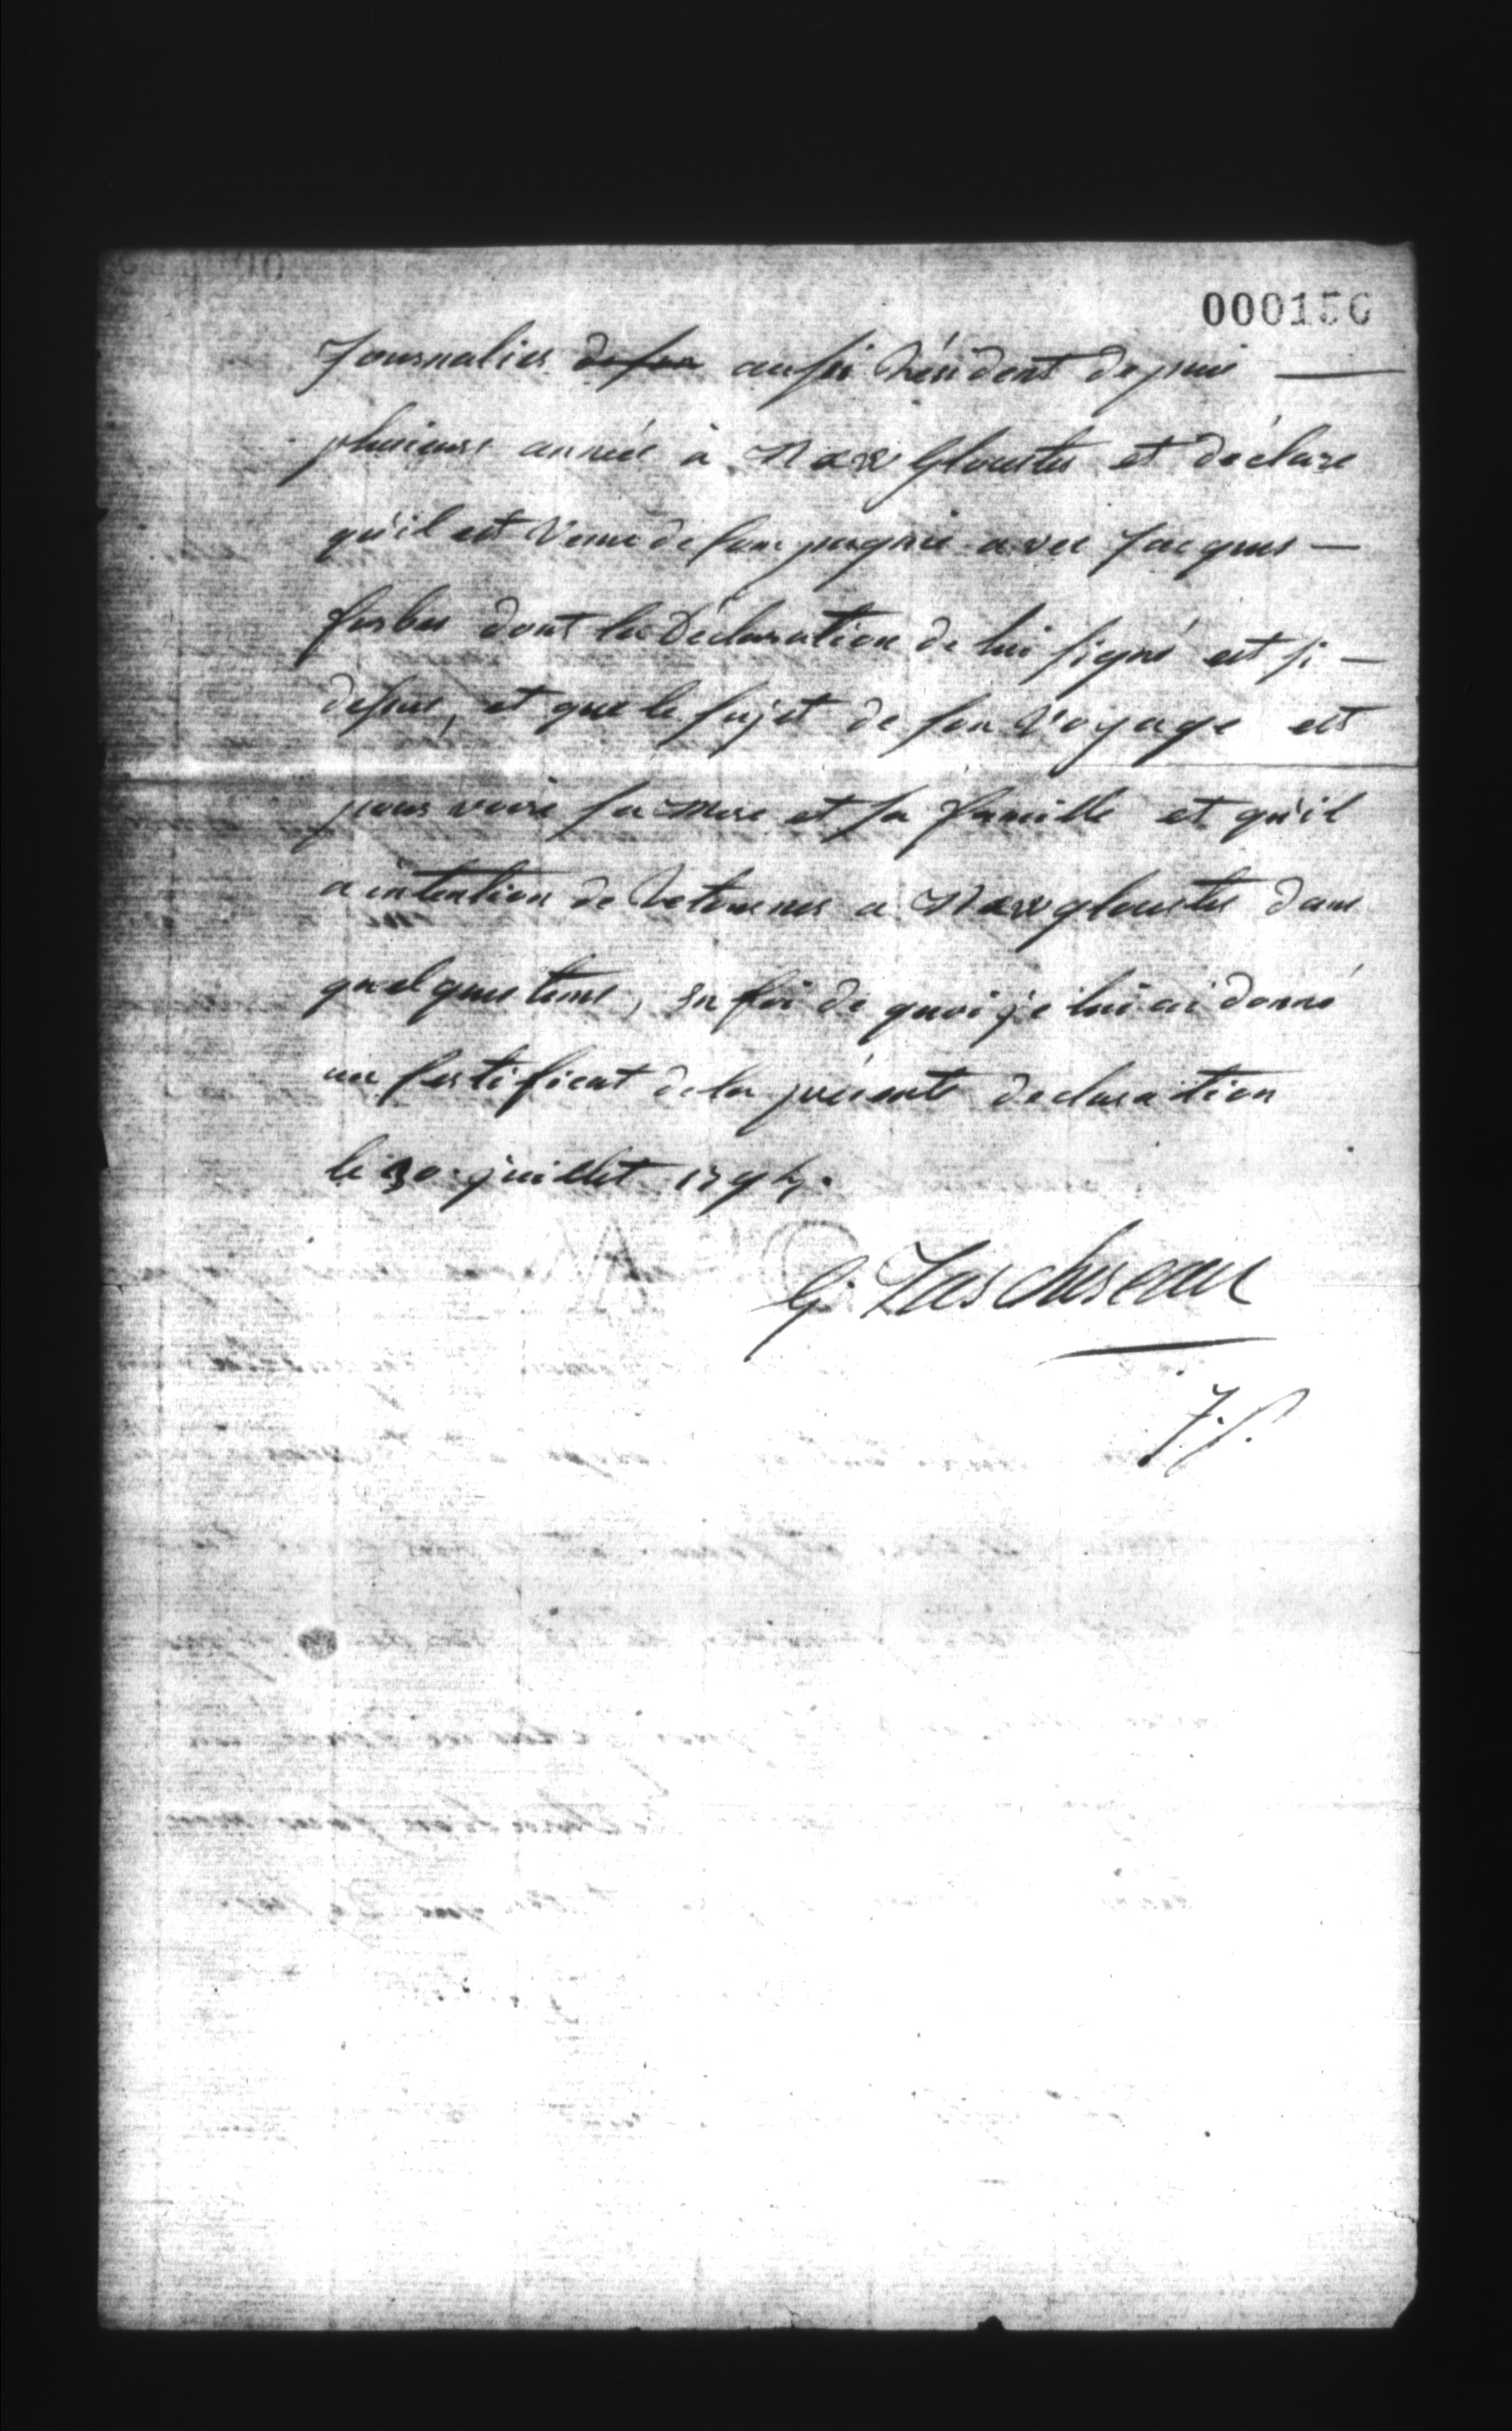 000156
Journalier de son aussi Résident depuis —
plusieurs année à New Gloucster et déclare
qu'il est Venu de Compagnie avec Jacques —
forbes dont la Déclaration de lui signé est si —
dessus, et que le sujet de son Voyage est
pour voire sa Mere et sa famille et qu'il
a intention de Retourner a New gloucster dans
quelques tems, en foi de quoi je lui ai donné
un Certificat de la présente declaration
le 30 juillet 1794.
G. Taschereau
J.P.